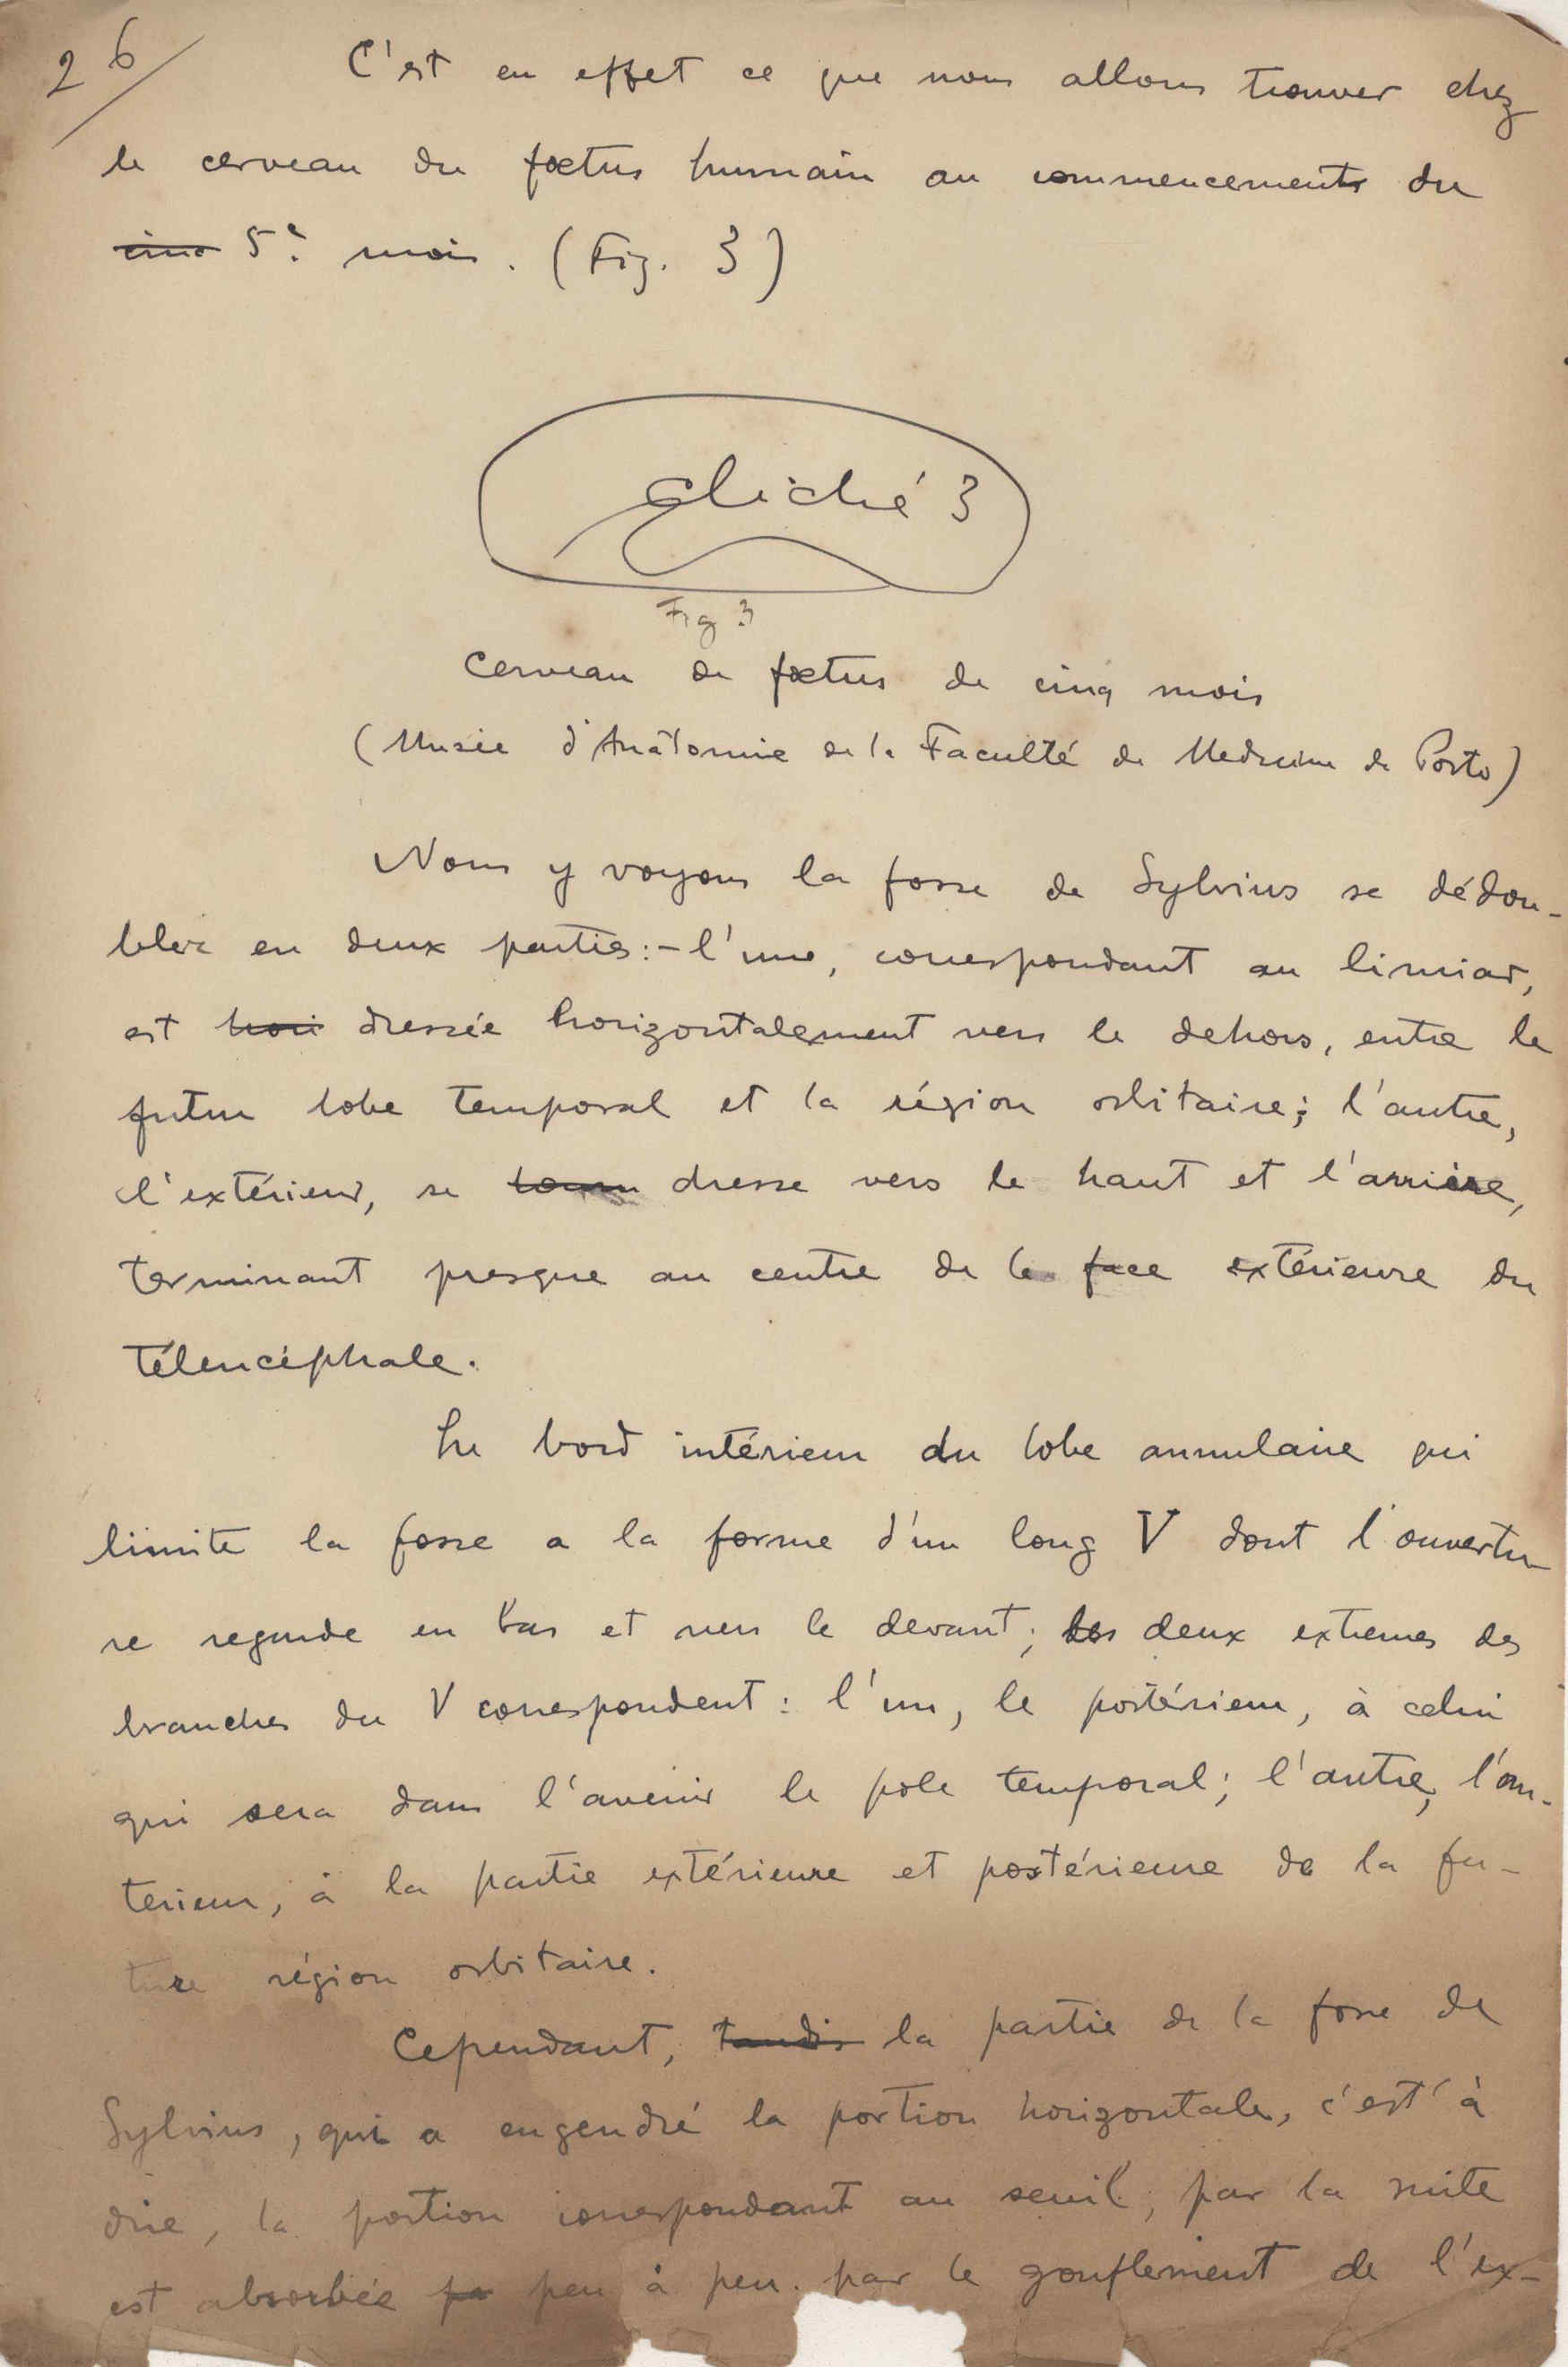 26/
C'est en effet ce que nous allons trouver chez
le cerveau du fœtus humain au commencement du
cinq 5e mois. (Fig. 3)
cliché 3
Fig 3
Cerveau de fœtus de cinq mois
(Musée d'Anatomie de la Faculté de Medecine de Porto)
Nous y voyons la fosse de Sylvius se dédou-
bler en deux parties:- l'une, correspondant au limiar,
est hori dressée horizontalement vers le dehors, entre le
futur lobe temporal et la région orbitaire; l'autre,
l'extérieur, se dresse vers le haut et l'arrière,
terminant presque au centre de la face extérieure du
télencéphale.
Le bord intérieur du lobe annulaire qui
limite la fosse a la forme d'un long V dont l'ouvertu
re regarde en bas et vers le devant; les deux extremes des
branches du V correspondent: l'un, le postérieur, à celui
qui sera dans l'avenir le pole temporal; l'autre, l'an-
terieur, à la partie extérieure et postérieure de la fu-
ture région orbitaire.
Cependant, tandis la partie de la fosse de
Sylvius, qui a engendré la portion horizontale, c'est à
dire, la portion correspondant au seuil, par la suite
est absorbée pa peu à peu par le gonflement de l'ex-